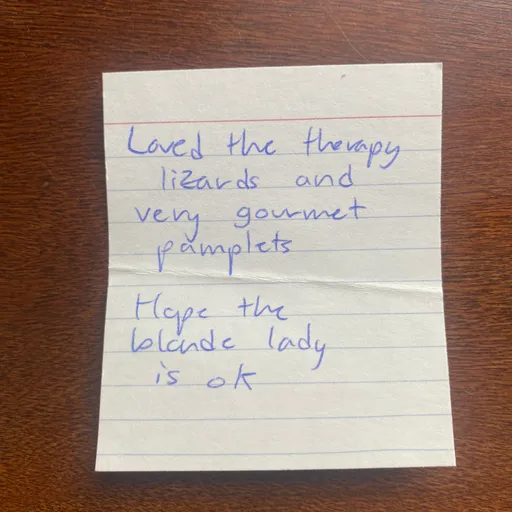 Loved the therapy
lizards and
very gourmet
pamplets
Hope the
blonde lady
is ok